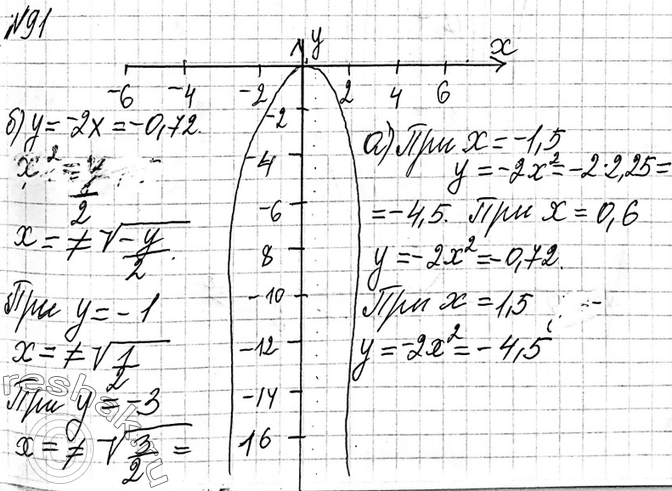 №91
y
x
-6 -4 -2 2 4 6
-2
-4
-6
8
-10
-12
-14
16
б) y = -2x = -0,72.
x² = y/2
x = ≠√(-y/2).
При y = -1
x = ≠√(1/2)
При y = -3
x = ≠√(3/2) =
а) При x = -1,5
y = -2x² = -2·2,25 =
= -4,5. При x = 0,6
y = -2x² = -0,72.
При x = 1,5
y = -2x² = -4,5
reshak.ru